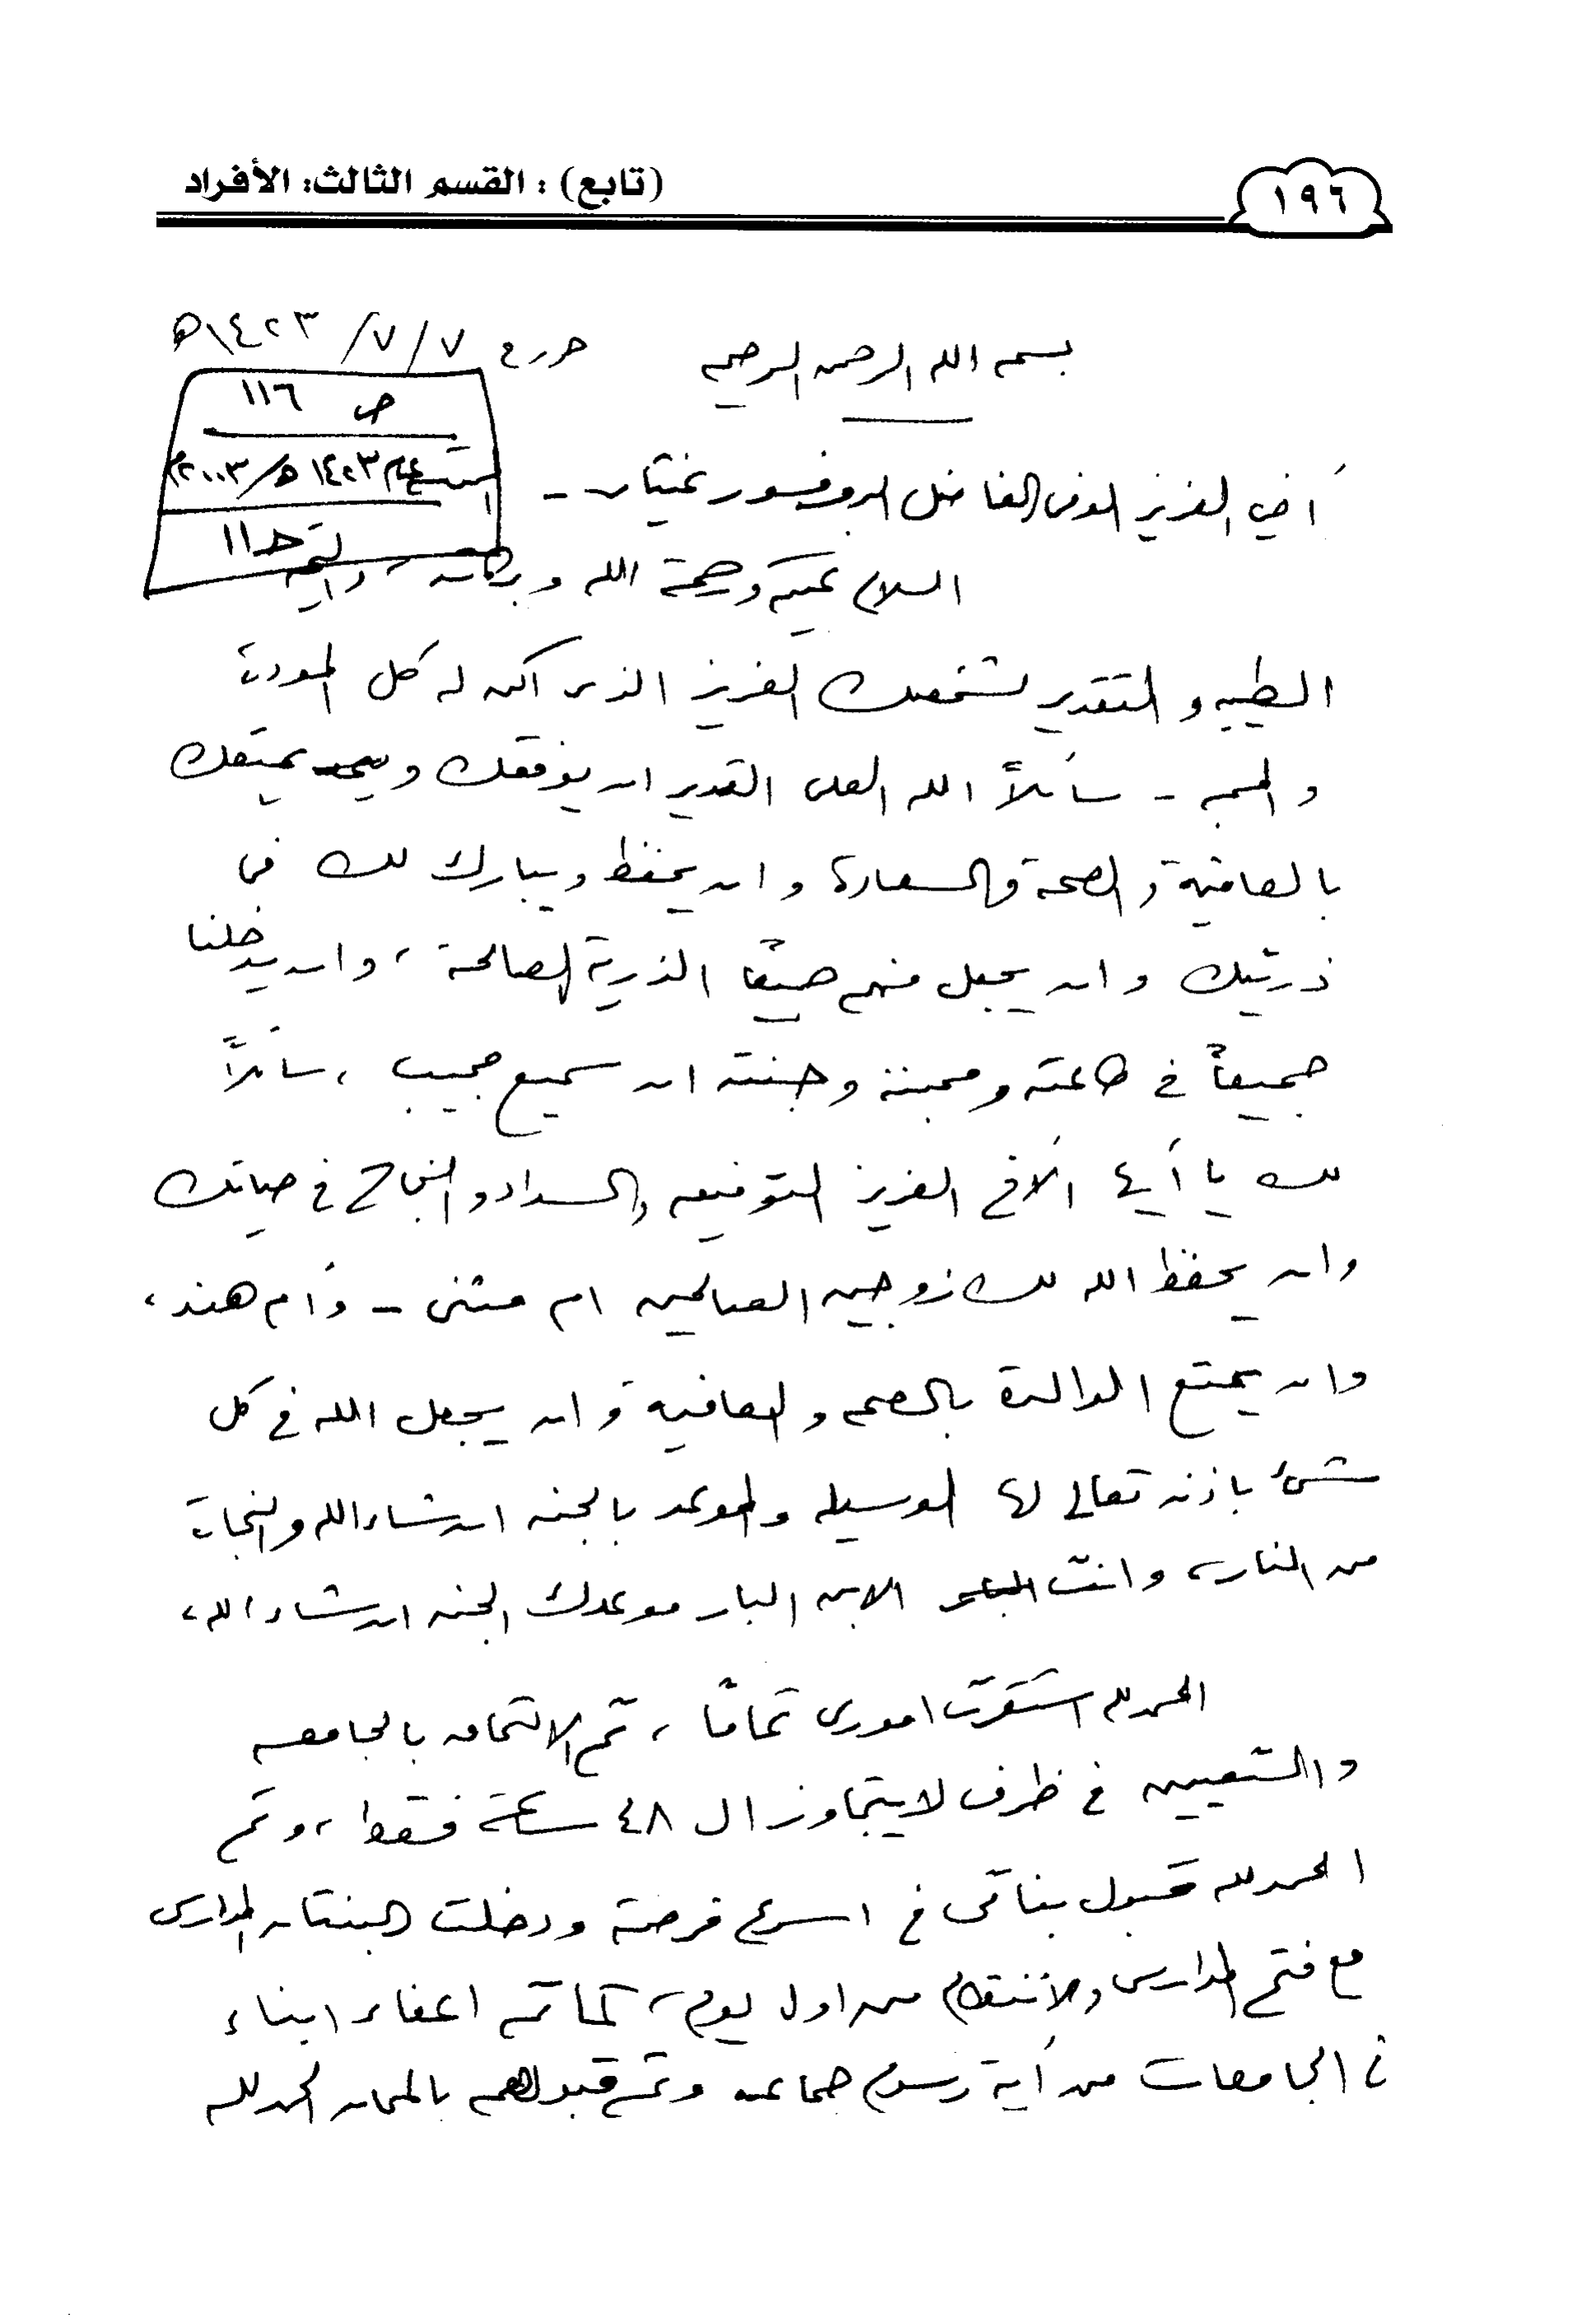 ١٩٦
(تابع) : القسم الثالث: الأفراد
بسم الله الرحمن الرحيم
حرر في ٧/٧/١٤٢٣ه
ص ١١٦
عام ١٤٢٣ه/٢٠٠٣م
ح١١
أخي العزيز الوفى الفاضل البروفسور بختيار --
السلام عليكم ورحمة الله وبركاته، والتحيه
الطيبه والتقدير لشخصك العزيز الذى اكن له كل المودة
والمحبه - سائلاً الله العلى القدير ان يوفقك ويمتعك
بالعافية والصحة والسعادة وان يحفظ ويبارك لك فى
ذريتك وان يجعل منهم جميعًا الذرية الصالحة، وان يدخلنا
جميعاً في طاعته ومحبته وجنته انه سميع مجيب، سائلاً
لك يا أيها الأخ العزيز التوفيق والسداد والنجاح في حياتك
وان يحفظ الله لك زوجين الصالحين ام مثنى - وأم هند،
وان يمتع الوالدة بالصحه والعافية وان يجعل الله في كل
شئ باذنه تعالى لها الوسيله والموعد بالجنه ان شاء الله والنجاة
من النار، وانت الابن البار موعدك الجنه ان شاء الله،
الحمد لله استقرت امورى تمامًا، تم الالتحاق بالجامعه
والتعيين في ظرف لا يتجاوز ال ٤٨ ساعة فقط، وتم
الحمد لله قبول بناتى في اسرع فرصة ودخلت البنتان المدارس
مع فتح المدارس والانتظام من اول يوم، كما تم اعفاء ابناء
ن الجامعات من أية رسوم جماعيه وتم قبولهم بالمجان الحمد لله